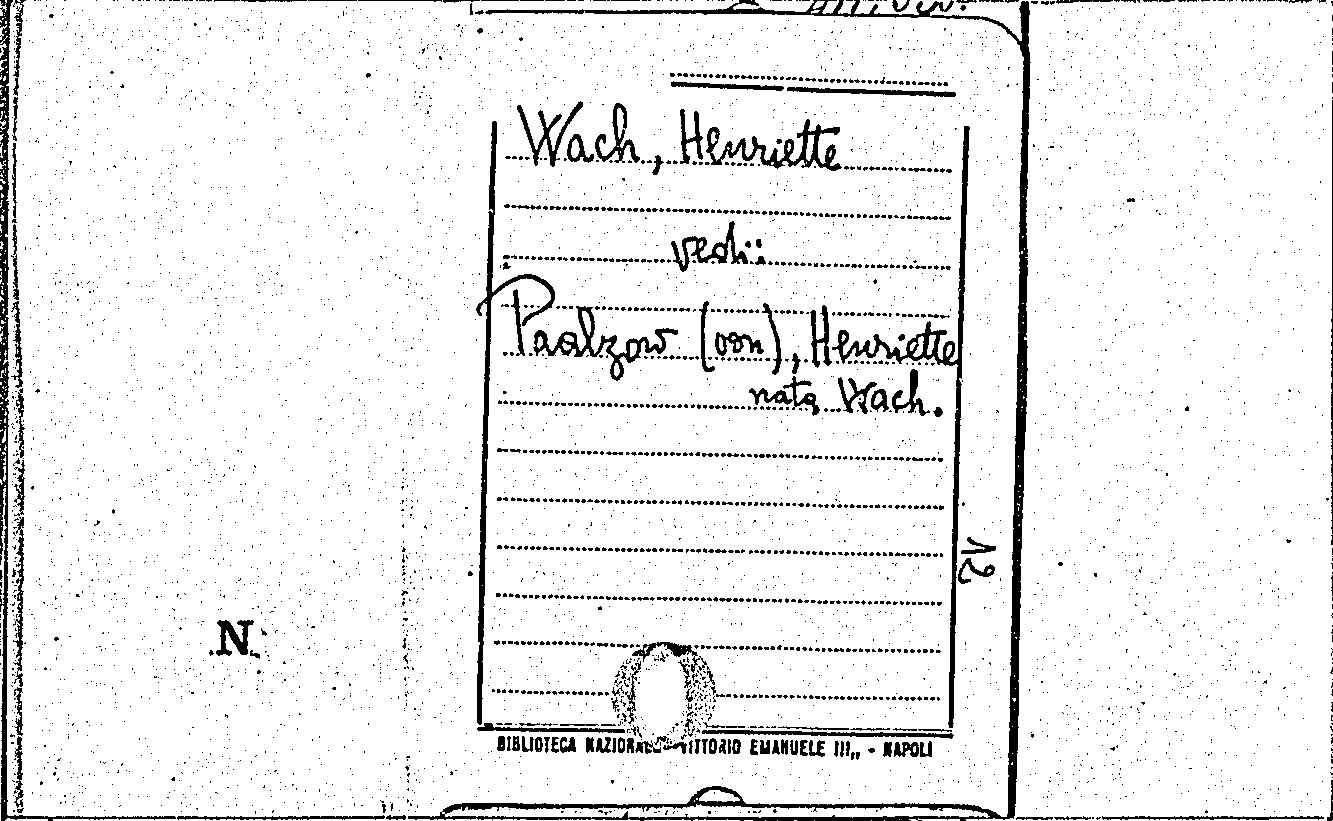 Wach, Henriette
vedi:
Paalzow (von), Henriette
nata Wach.
12
N.
BIBLIOTECA NAZIONALE "VITTORIO EMANUELE III„ - NAPOLI